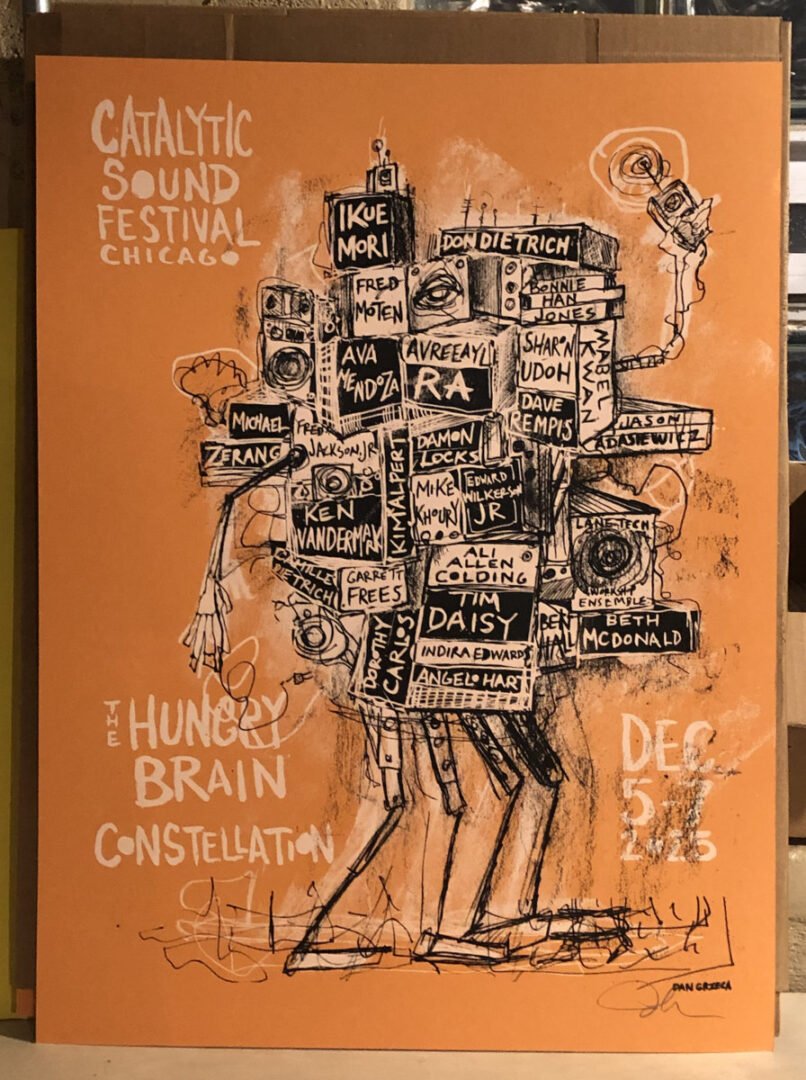 CATALYTIC
SOUND
FESTIVAL
CHICAGO
IKUE
MORI
DON DIETRICH
FRED
MOTEN
BONNIE
HAN
JONES
AVA
MENDOZA
AVREEAYL
RA
SHARON
UDOH
MABEL
KWAN
DAVE
REMPIS
JASON
ADASIEWICZ
MICHAEL
ZERANG
FRED
JACKSON, JR
KIM ALPERT
DAMON
LOCKS
MIKE
KHOURY
EDWARD
WILKERSON
JR
KEN
VANDERMARK
LANE TECH
WORKSHOP
ENSEMBLE
CAMILLE
DIETRICH
GARRETT
FREES
ALI
ALLEN
COLDING
TIM
DAISY
BEN
HALL
BETH
MCDONALD
DOROTHY
CARLOS
INDIRA EDWARDS
ANGELO HART
THE HUNGRY
BRAIN
CONSTELLATION
DEC
5-7
2025
DAN GRZECA